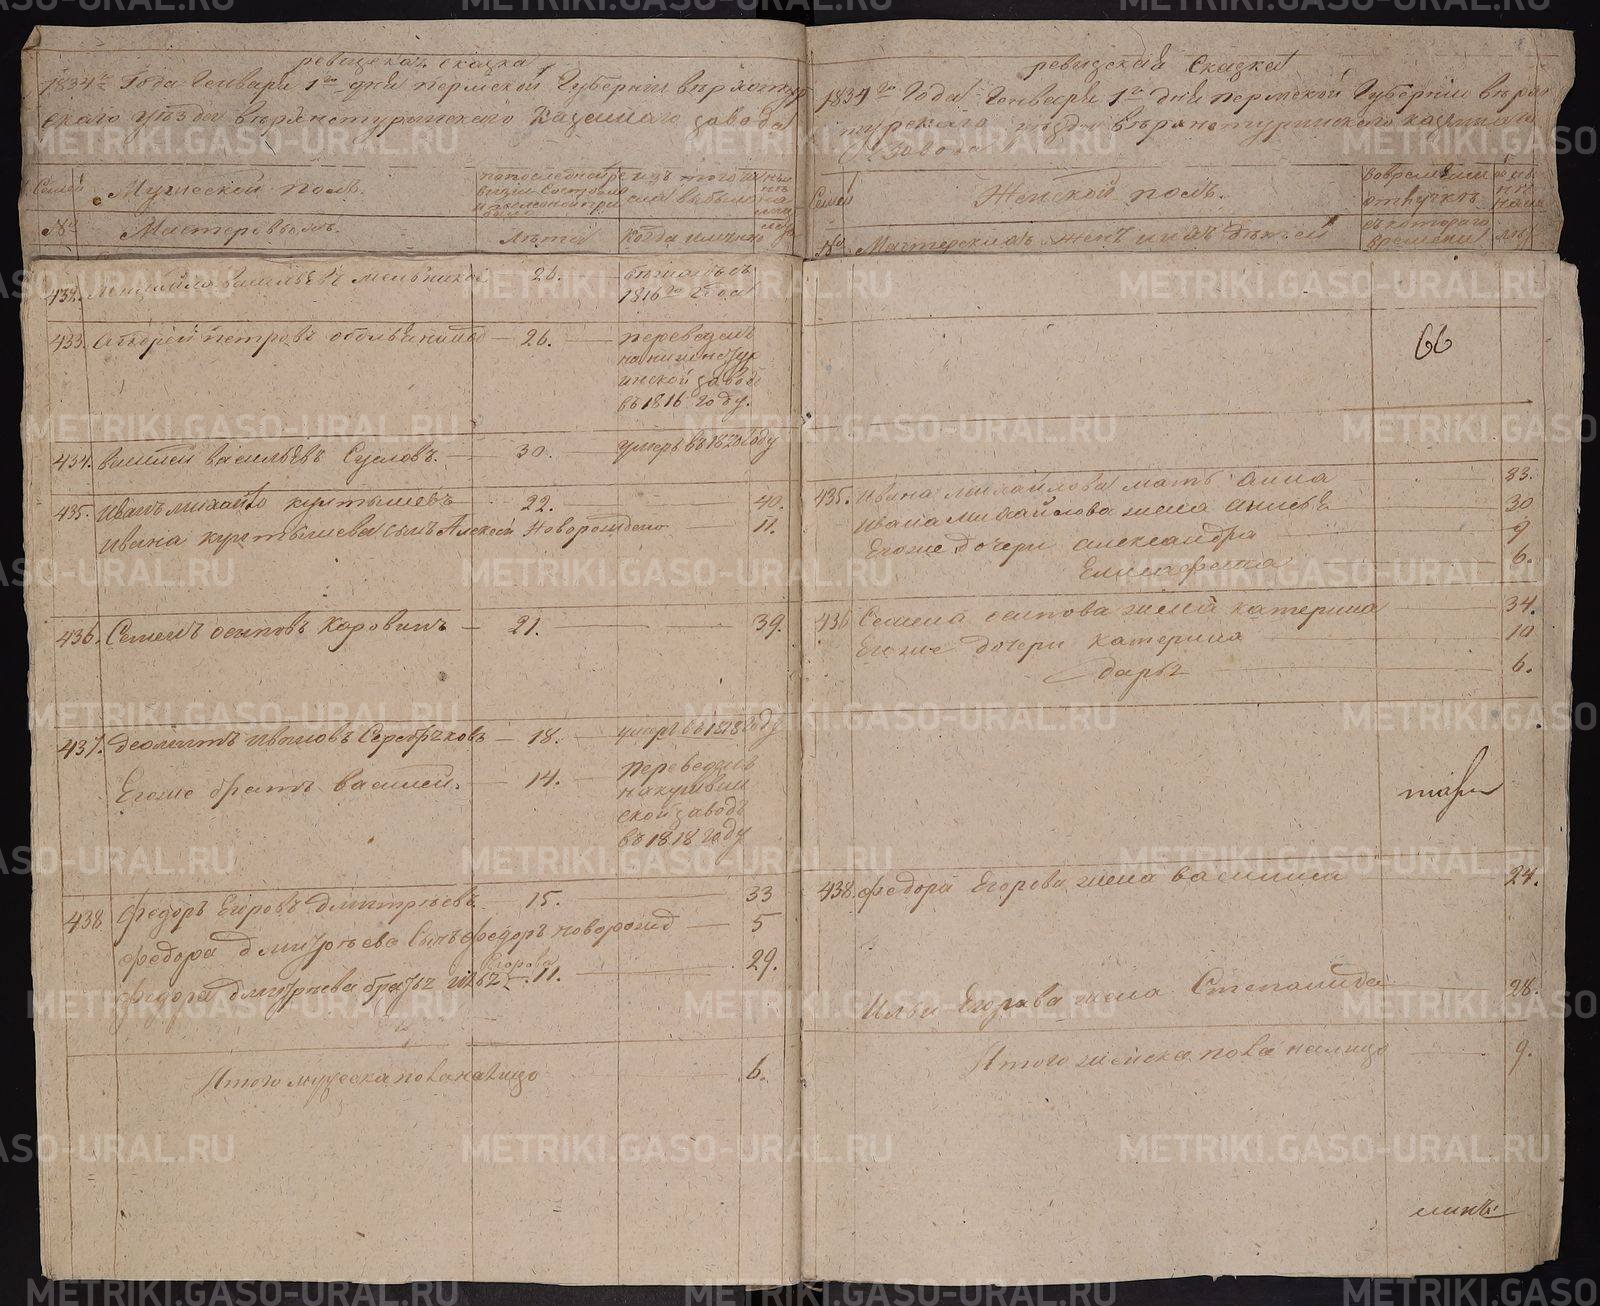 ревизская сказка
1834го Года Генваря 1го дня пермской Губернии верхотур
скаго уезда верхнетуринскаго Казеннаго завода
Семьи
Мужеской полъ.
Мастеровыемъ.
Лѣта
Когда имянно
432. Михайло васильевъ мельников 26. 1816го Года
433. Андрей петровъ 26. переведенъ
на нижнетур
инской заводъ
въ 1816 году.
434. василей васильевъ Сусловъ. 30. умеръ въ 1820 году
435. Иванъ михайло куртышевъ 22. 40.
Ивана куртышева сынъ Алексей Новорожденъ 11.
436. Семенъ осиповъ Коровинъ 21. 39.
437. Ивановъ Серебряковъ 18. умеръ въ 1828 году
Егоже братъ василей. 14. переведенъ
на кушвин
ской заводъ
въ 1818 году
438 Федоръ Егоровъ дмитриевъ 15. 33
Федора дмитриева Сынъ федоръ новорожд 5
Егоровъ
федора дмитриева братъ илья 11. 29.
Итого мужеска пола налицо 6.
ревизская Сказка
1834го Года Генваря 1го дня пермской Губернии верхо
турскаго уезда верхнетуринскаго казеннаго
завода
Семьи
Женской полъ.
во временной
отлучкѣ
съ котораго
времени
№ Мастерскихъ женъ и ихъ детей
66
435. Ивана михайлова мать анна 83.
Ивана михайлова жена анисья 30
Егоже дочери александра 9
6.
436 Семена осипова жена катерина 34.
Егоже дочери катерина 10
дарья 6.
438. федора Егорова жена василиса 24.
Ильи Егорова жена Степанида 28.
Итого женска пола налицо 9.
METRIKI.GASO-URAL.RU